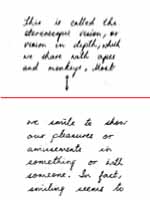 This is called the
stereoscopic vision, or
vision in depth, which
we share with apes
and monkeys. Most
we smile to show
our pleasures or
amusements in
something or with
someone. In fact,
smiling seems to